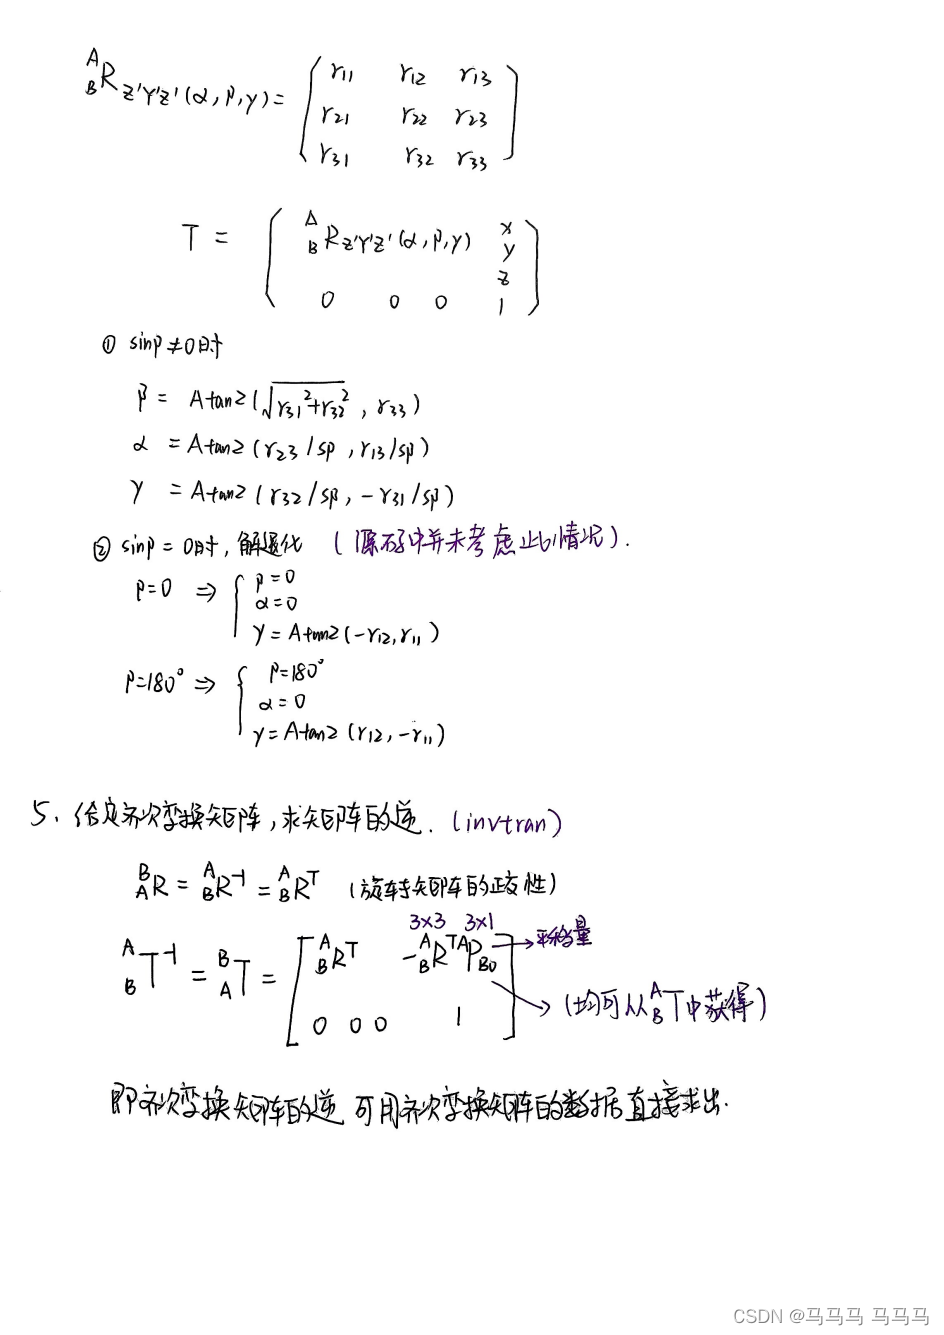 ᴬ_B R_{Z'Y'Z'}(α,β,γ) = [ r11 r12 r13
r21 r22 r23
r31 r32 r33 ]
T = [ ᴬ_B R_{Z'Y'Z'}(α,β,γ) x
y
z
0 0 0 1 ]
① sinβ≠0时
β = Atan2(√(r31²+r32²), r33)
α = Atan2(r23/sβ, r13/sβ)
γ = Atan2(r32/sβ, -r31/sβ)
② sinβ=0时,解退化 (源码中并未考虑此情况).
β=0 ⇒ { β=0
α=0
γ=Atan2(-r12,r11)
β=180° ⇒ { β=180°
α=0
γ=Atan2(r12,-r11)
5、给定齐次变换矩阵,求矩阵的逆.(invtran)
ᴮ_A R = ᴬ_B R⁻¹ = ᴬ_B Rᵀ (旋转矩阵的正交性)
3×3 3×1
ᴬ_B T⁻¹ = ᴮ_A T = [ ᴬ_B Rᵀ -ᴬ_B Rᵀ ᴬP_{B0} → 平移量
→ (均可从 ᴬ_B T中获得)
0 0 0 1 ]
即齐次变换矩阵的逆可用齐次变换矩阵的数据直接求出.
CSDN @马马马 马马马